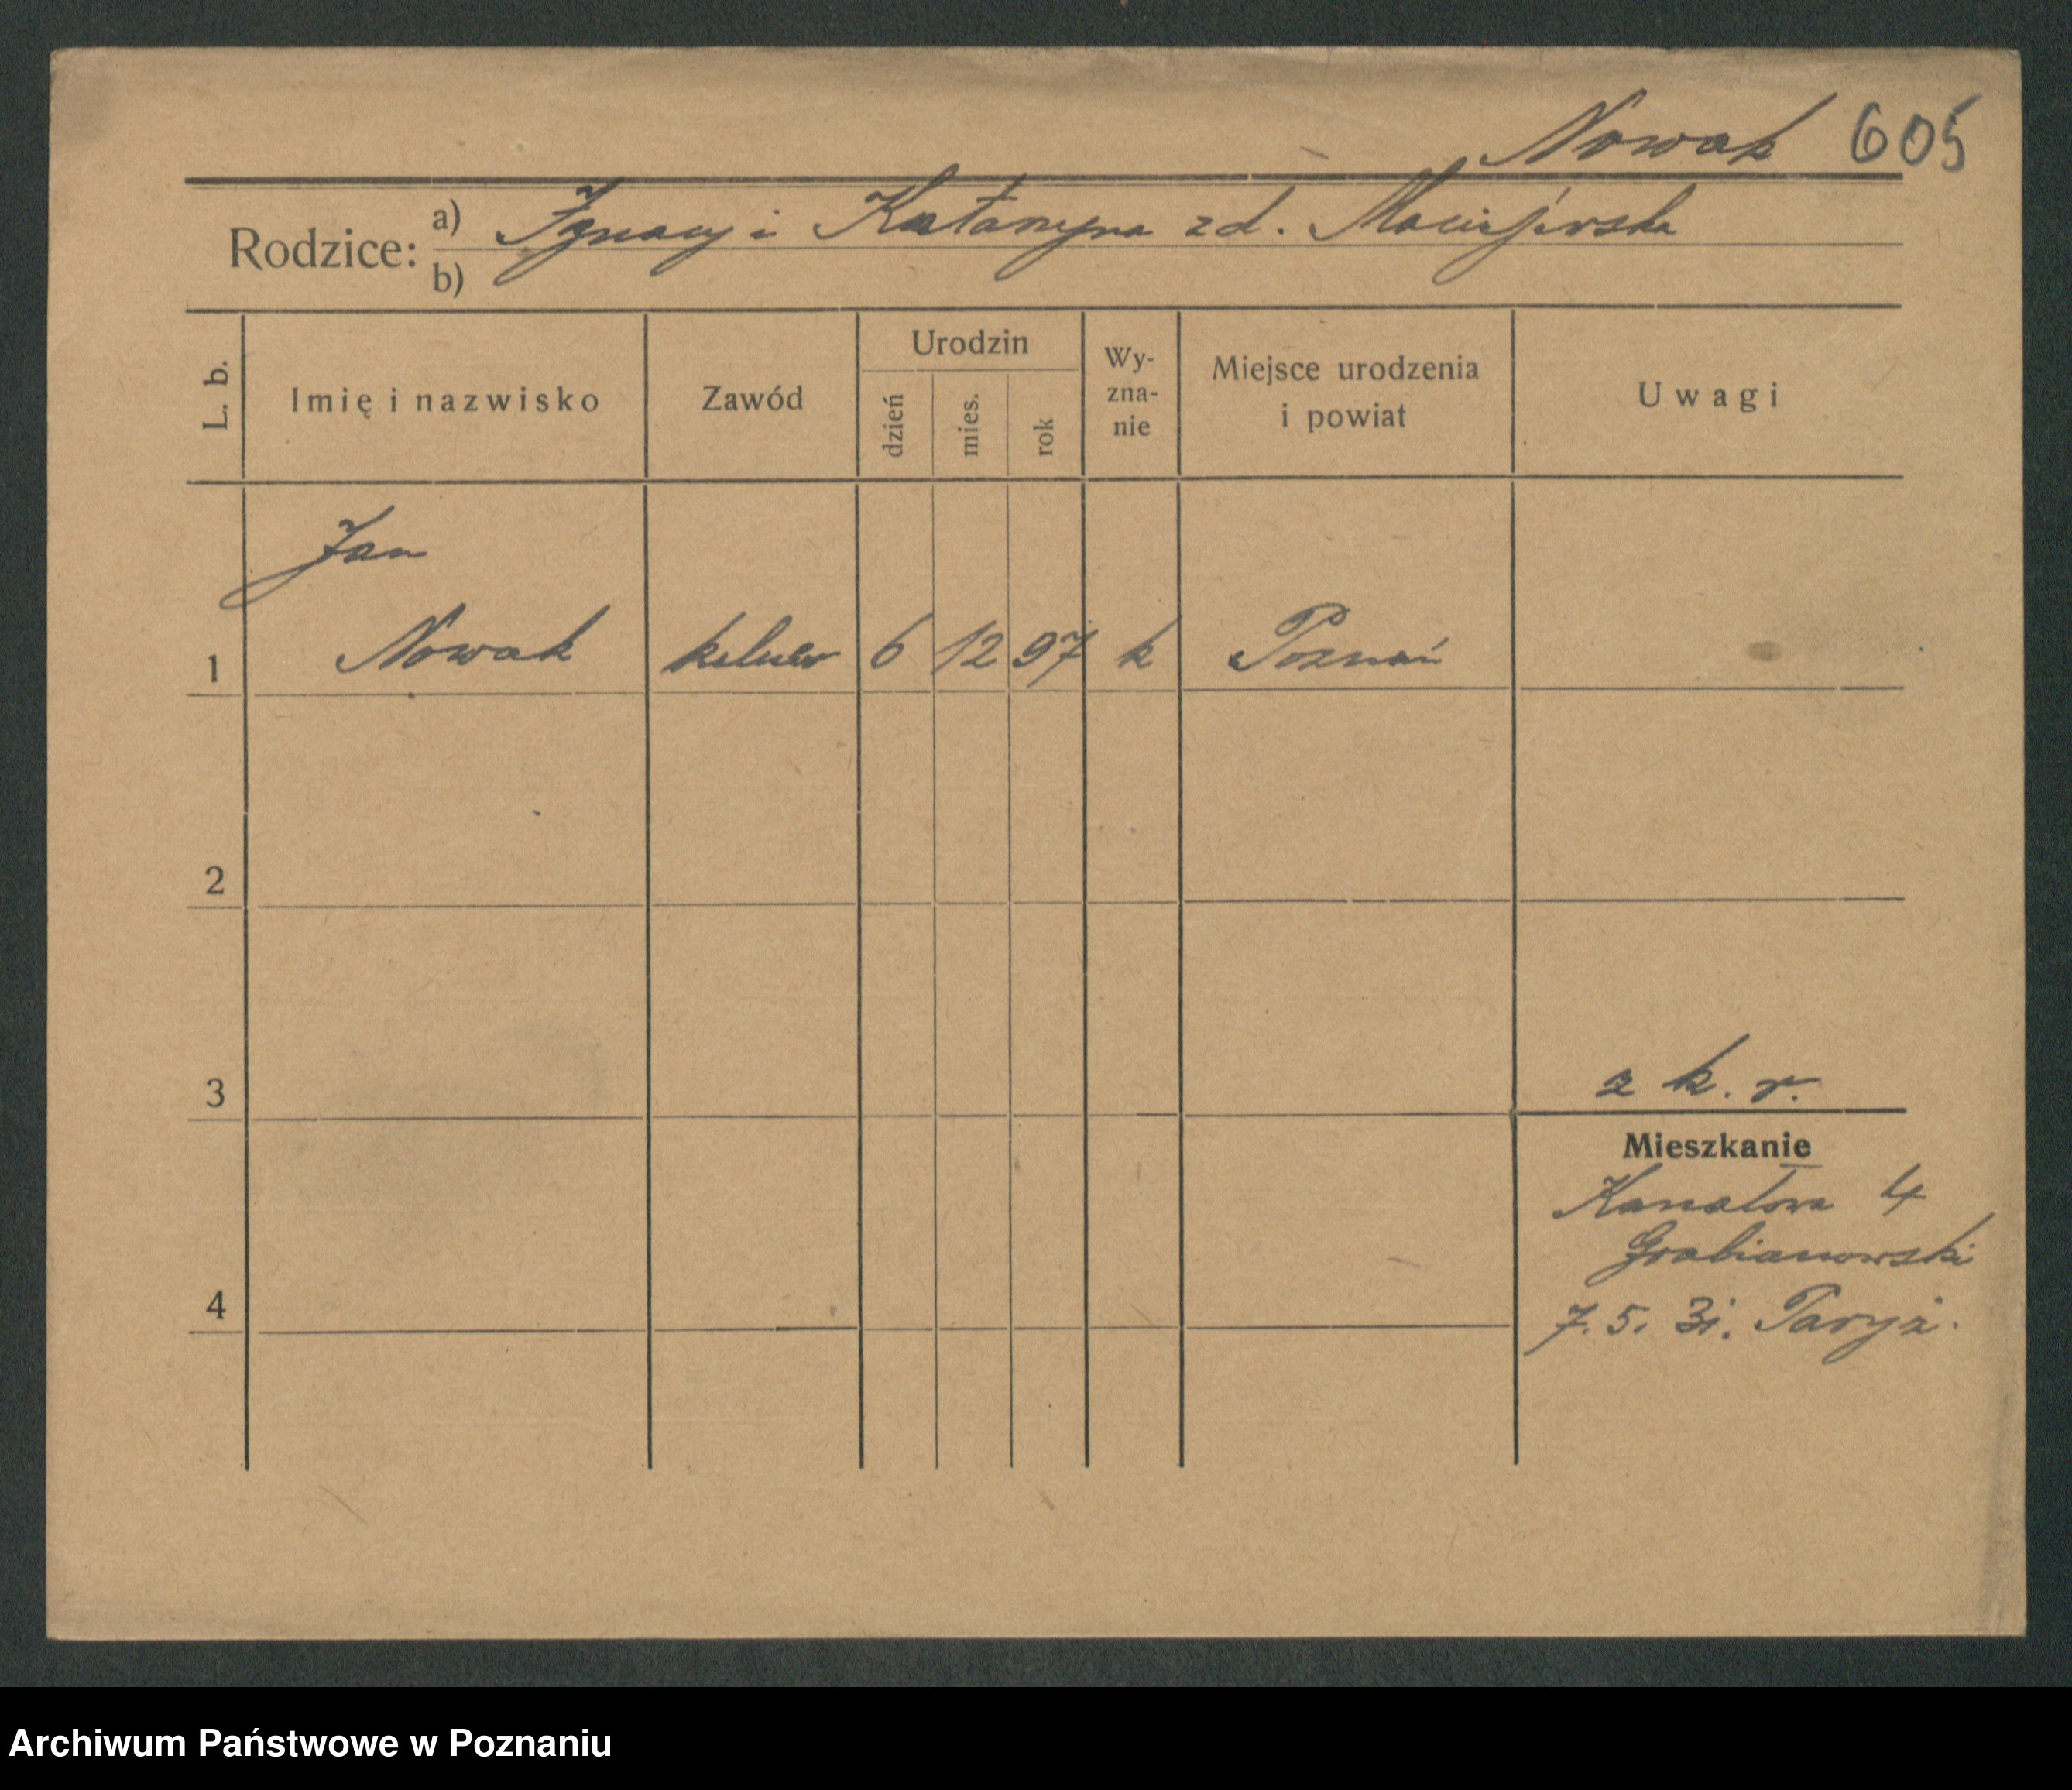 Nowak 605
Rodzice: a) Ignacy i Katarzyna zd. Maciejewska
b)
L. b. Imię i nazwisko Zawód Urodzin dzień mies. rok Wy-zna-nie Miejsce urodzenia i powiat Uwagi
Jan
1 Nowak kelner 6 12 97 k Poznań
2
3 z k. r.
Mieszkanie
Kanałowa 4
Grabianowski
4 7. 5. 31. Paryż.
Archiwum Państwowe w Poznaniu